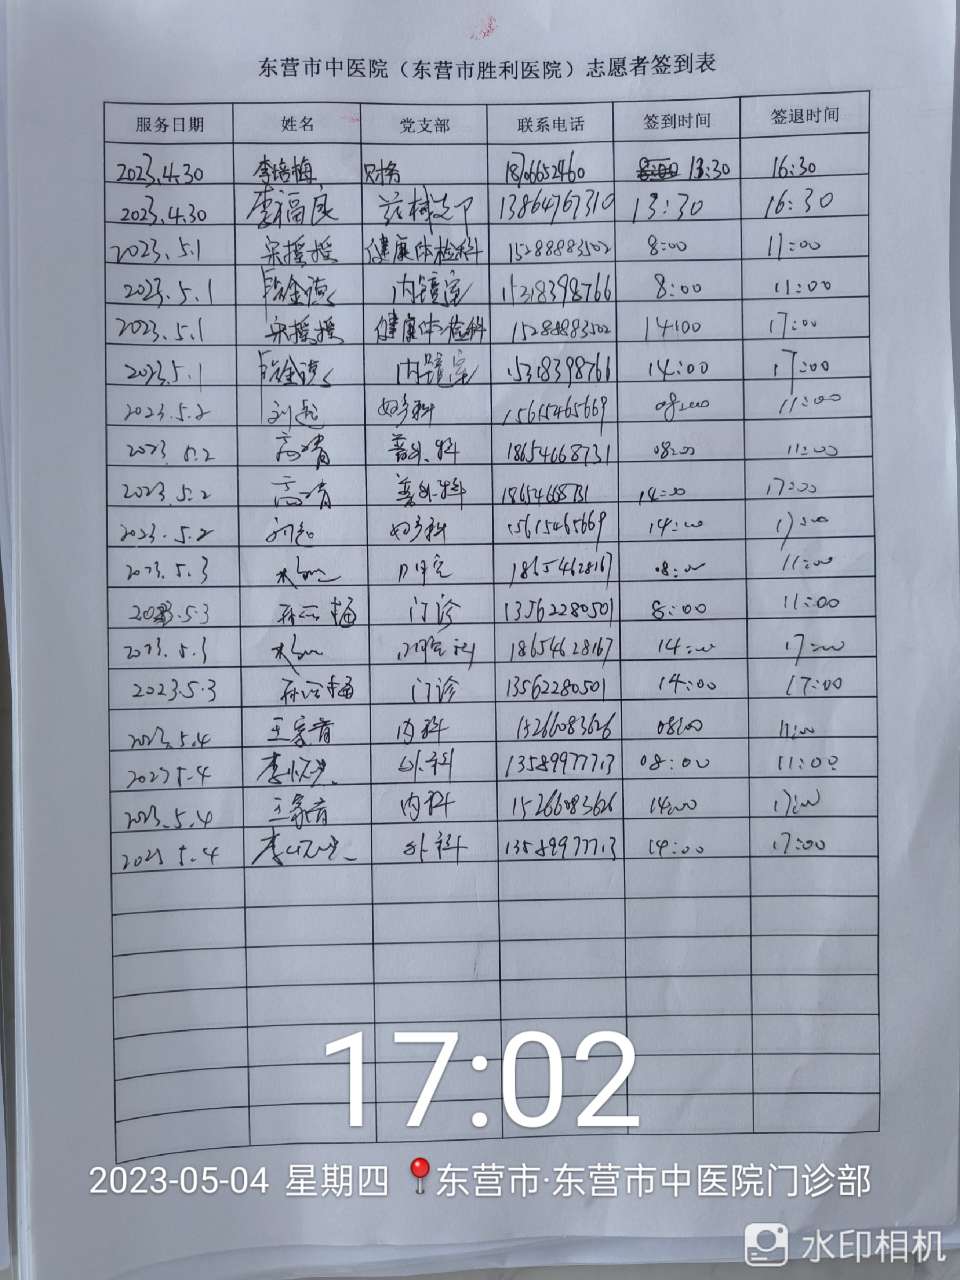 东营市中医院（东营市胜利医院）志愿者签到表
服务日期 姓名 党支部 联系电话 签到时间 签退时间
2023.4.30 李培梅 财务 18706652460 13:30 16:30
2023.4.30 李福民 药械支部 13864767310 13:30 16:30
2023.5.1 宋摇摇 健康体检科 15288883502 8:00 11:00
2023.5.1 内镜室 15318398766 8:00 11:00
2023.5.1 宋摇摇 健康体检科 15288883502 14:00 17:00
2023.5.1 内镜室 15318398766 14:00 17:00
2023.5.2 妇产科 15615465669 08:00 11:00
2023.5.2 高晴 普外科 18654668731 08:00 11:00
2023.5.2 高晴 普外科 18654668731 14:00 17:00
2023.5.2 妇产科 15615465669 14:00 17:00
2023.5.3 18654628167 08:00 11:00
2023.5.3 门诊 13562280501 8:00 11:00
2023.5.3 18654628167 14:00 17:00
2023.5.3 门诊 13562280501 14:00 17:00
2023.5.4 王家省 内科 15266083626 08:00 11:00
2023.5.4 外科 13589977713 08:00 11:00
2023.5.4 王家省 内科 15266083626 14:00 17:00
2023.5.4 外科 13589977713 14:00 17:00
17:02
2023-05-04 星期四 东营市·东营市中医院门诊部
水印相机